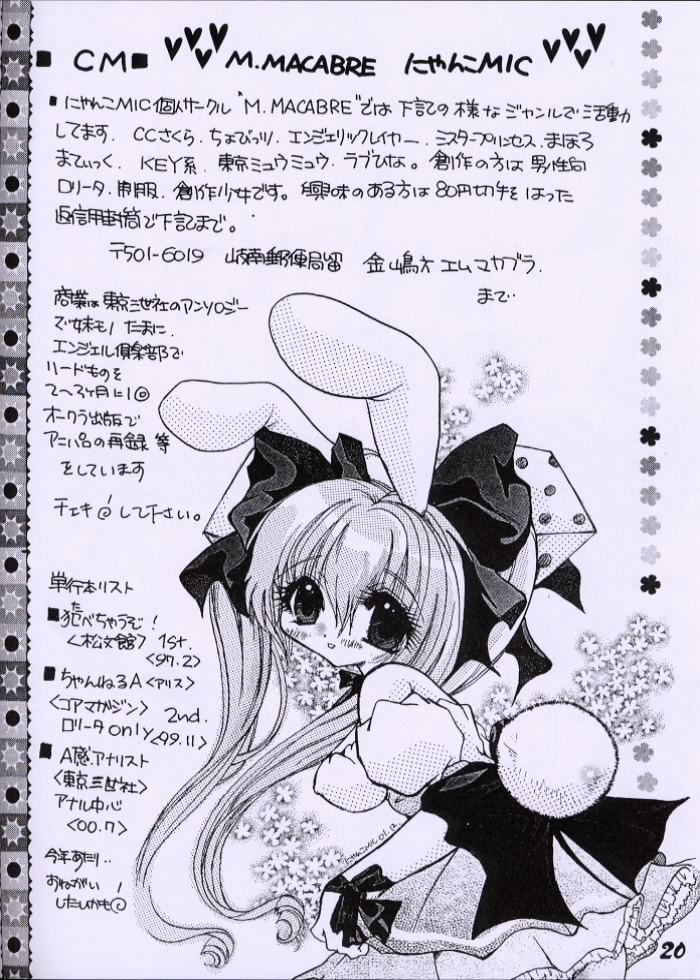 ■ CM■ M.MACABRE にゃんこMIC
■にゃんこMIC個人サークル“M.MACABRE”では下記の様なジャンルで活動
してます. CCさくら. ちょびっツ. エンジェリックレイヤー. ミスタープリンセス. まほろ
まてぃっく. KEY系. 東京ミュウミュウ. ラブひな。創作の方は男性向
ロリータ. 制服. 創作少女です。興味のある方は80円切手をはった
返信用封筒で下記まで。
〒501-6019 岐南郵便局留 金嶋方 エムマカブラ.
まで‥
商業は東京三世社のアンソロジー
で妹もの たまに.
エンジェル倶楽部で
ハードものを
2〜3ヶ月に1回
オークラ出版で
アニパロの再録 等
をしています
チェキ して下さい。
単行本リスト
■犯べちゃうむ!
た
<松文館> 1st.
<97.2>
■ちゃんねるA<アリス>
<コアマガジン> 2nd.
ロリータonly<99.11>
■A感アナリスト
<東京三世社>
アナル中心
<00.7>
今年あたり‥
おねがい!
したいかも
にゃんこMIC 01.12.
20